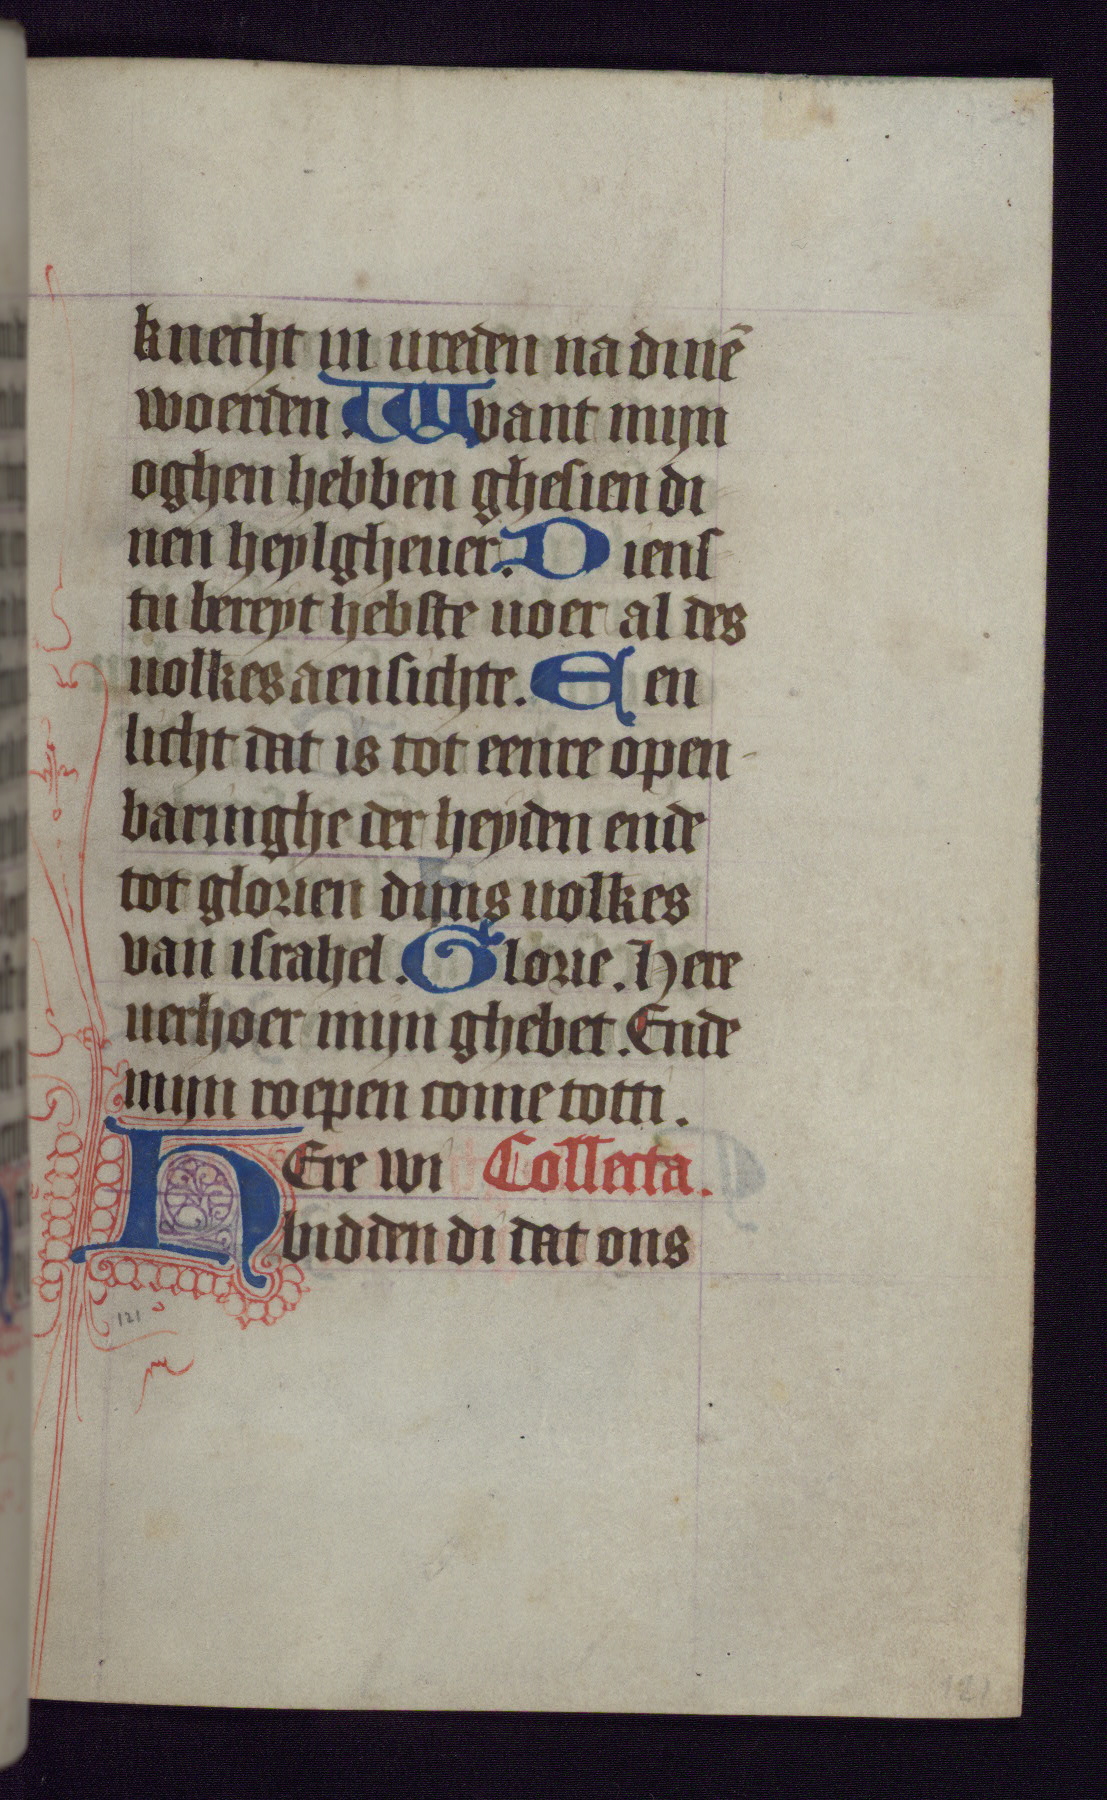 knecht in ureden na dinē
woerden. Wvant mijn
oghen hebben ghesien di
nen heylgheuer. Diens
tu bereyt hebste uoer al des
uolkes aensichte. Een
licht dat is tot eenre open
baringhe der heyden ende
tot glorien dijns uolkes
van israhel. Glorie. Here
uerhoer mijn ghebet. Ende
mijn roepen come totti.
HEre wi Collecta.
bidden di dat ons
121
121